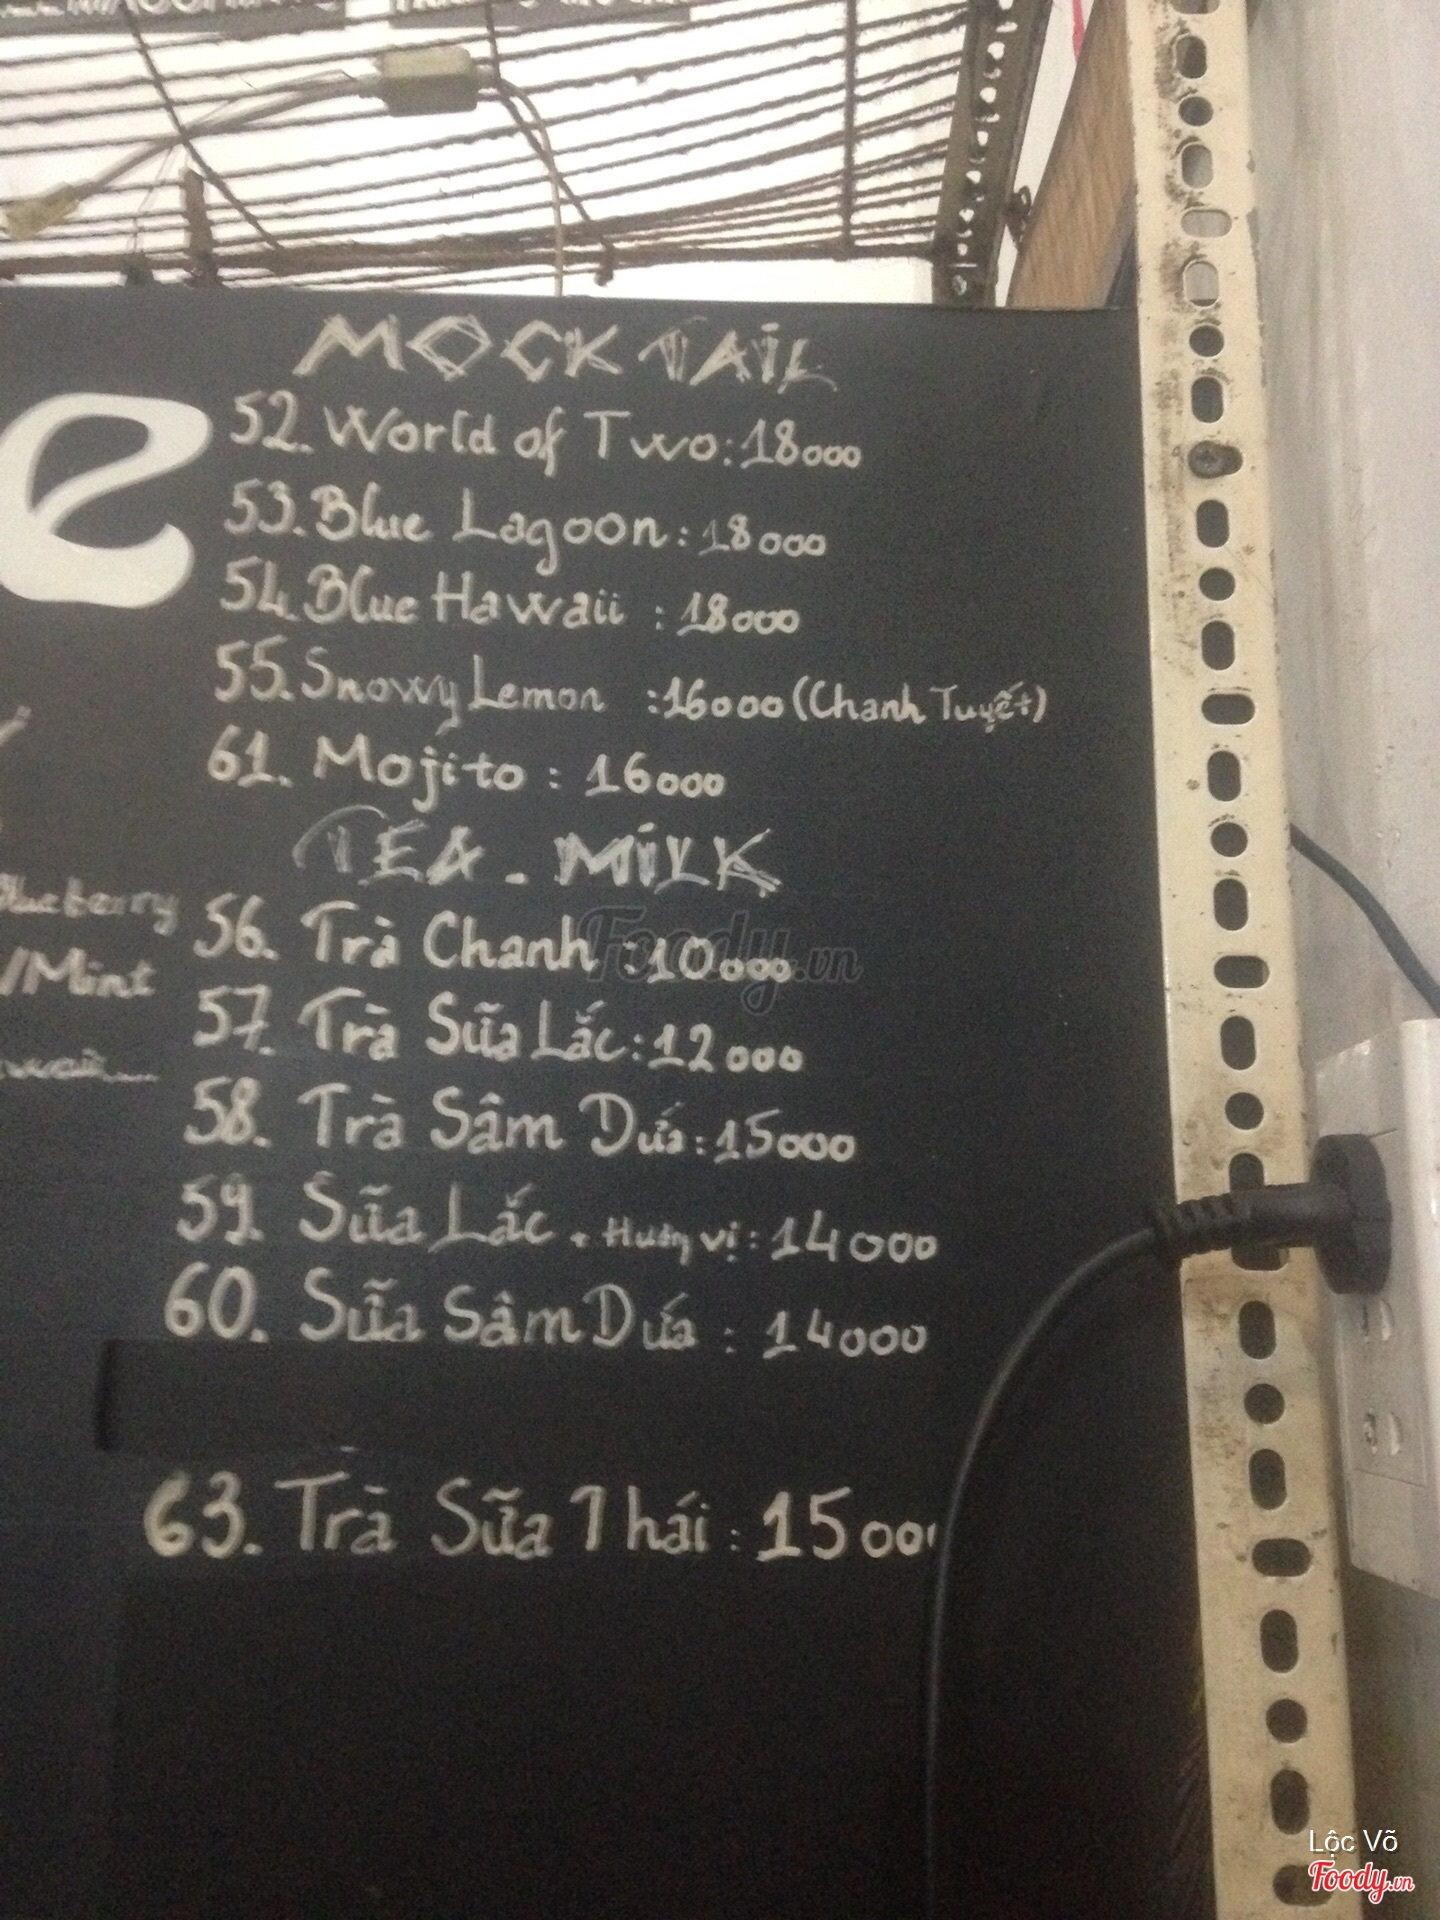 MOCKTAIL
e
52. World of Two: 18000
53. Blue Lagoon: 18000
54. Blue Hawaii : 18000
55. Snowy Lemon : 16000 (Chanh Tuyết)
61. Mojito : 16000
TEA - MILK
Blueberry
56. Trà Chanh : 10000
/Mint
57. Trà Sữa Lắc: 12000
58. Trà Sâm Dứa: 15000
59. Sữa Lắc + Hương vị: 14000
60. Sữa Sâm Dứa : 14000
63. Trà Sữa Thái : 15000
Foody.vn
Lộc Võ
Foody.vn